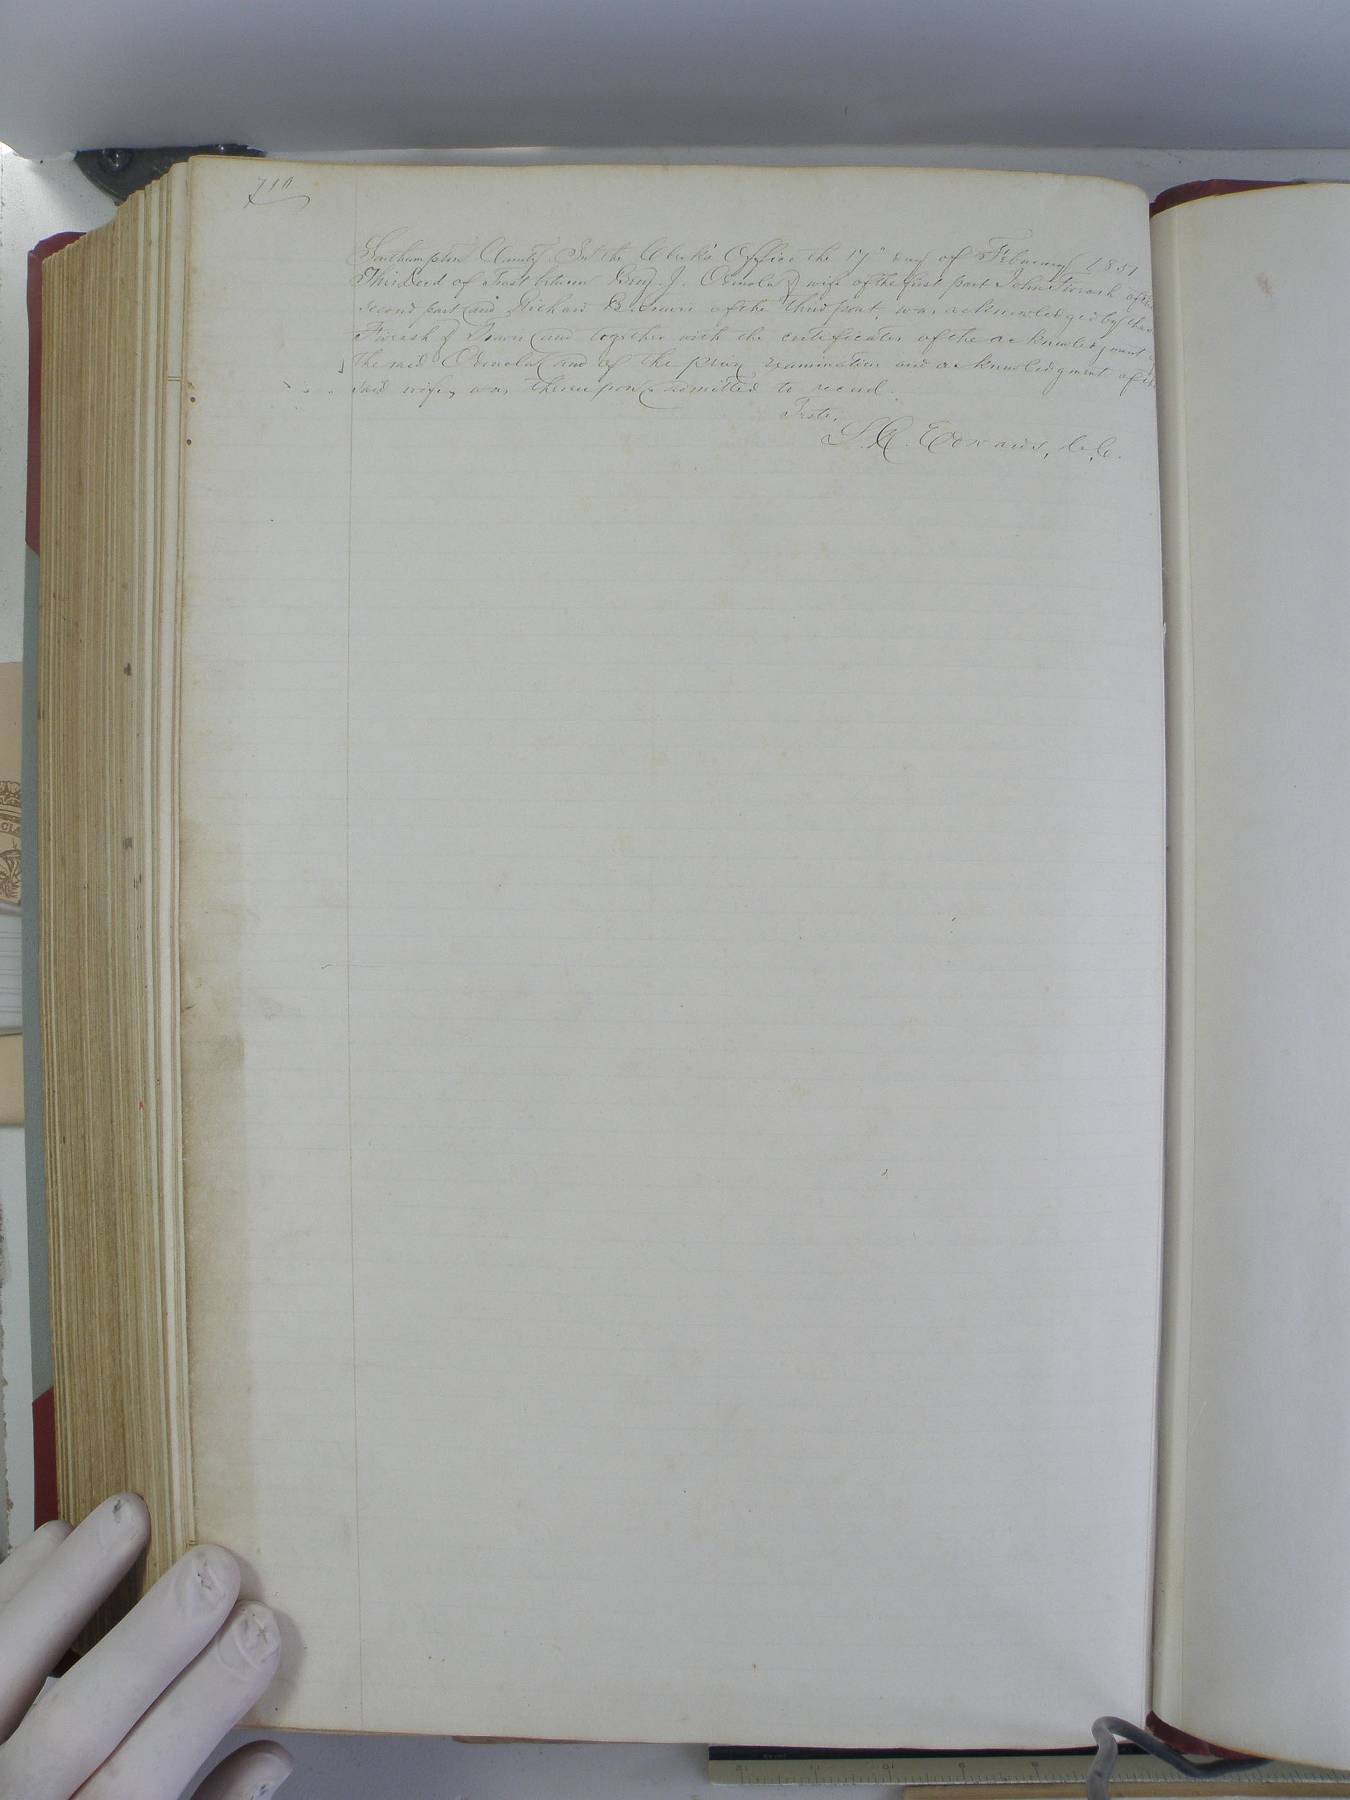 710
Southampton County. In the Clerk's Office the 17" day of February 1851
This Deed of Trust between Benj. J. & wife of the first part John of the
second part and Richard B. of the third part, was acknowledged by the
& and together with the certificates of the acknowledgment
the said and of the privy examination and acknowledgment of the
said wife, was thereupon admitted to record.
Teste,
L. R. Edwards, C.C.